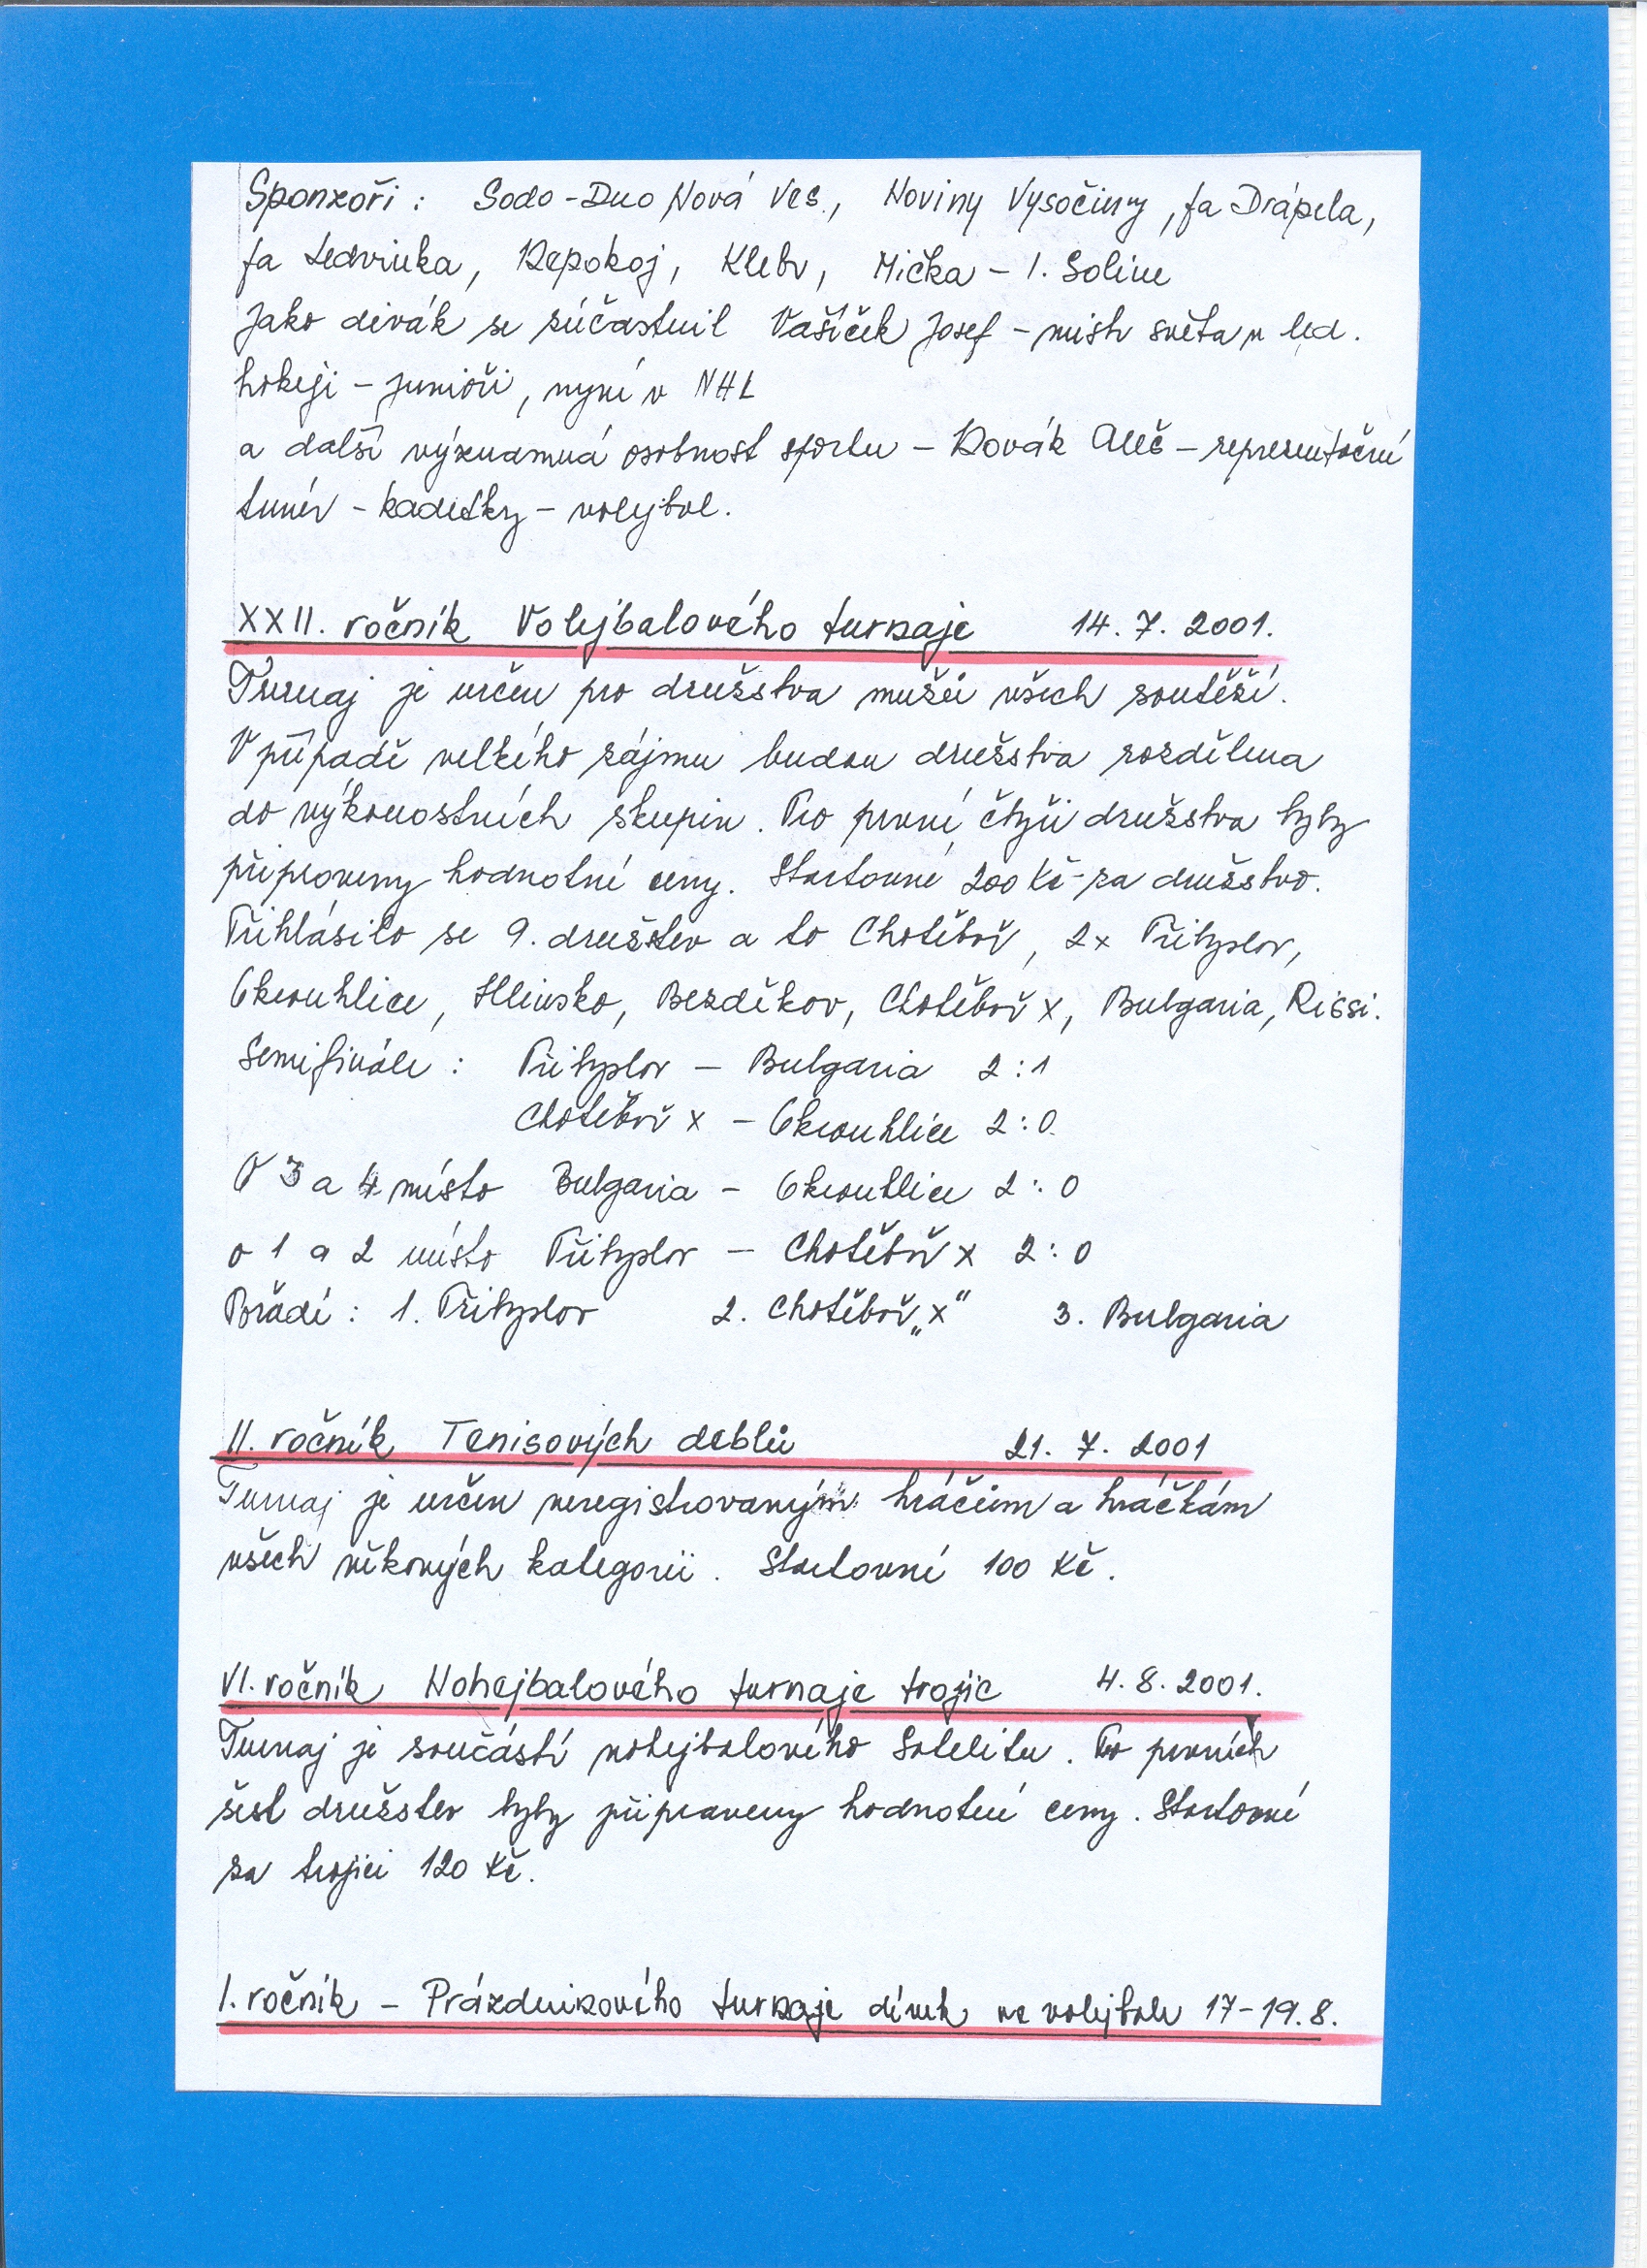 Sponzoři: Sodo-Duo Nová Ves., Noviny Vysočiny, fa Drápela,
fa Ledvinka, Depokoj, Klebr, Mička - I. Soline
Jako divák se zúčastnil Vašíček Josef - mistr světa v led.
hokeji - junioři, nyní v NHL
a další významná osobnost sportu - Novák Aleš - reprezentační
trenér - kadetky - volejbal.
XXII. ročník Volejbalového turnaje 14.7.2001.
Turnaj je určen pro družstva mužů všech soutěží.
V případě velkého zájmu budou družstva rozdělena
do výkonostních skupin. Pro první čtyři družstva byly
připraveny hodnotné ceny. Startovné 200 Kč - za družstvo.
Přihlásilo se 9. družstev a to Chotěboř, 2x Přibyslav,
Okrouhlice, Hlinsko, Bezděkov, Chotěboř x, Bulgaria, Rissi.
Semifinále: Přibyslav - Bulgaria 2:1
Chotěboř x - Okrouhlice 2:0
O 3 a 4 místo Bulgaria - Okrouhlice 2:0
o 1 a 2 místo Přibyslav - Chotěboř x 2:0
Pořadí: 1. Přibyslav 2. Chotěboř „x“ 3. Bulgaria
II. ročník Tenisových deblů 21. 7. 2001
Turnaj je určen neregistrovaným hráčům a hráčkám
všech věkových kategorií. Startovní 100 Kč.
VI. ročník Nohejbalového turnaje trojic 4.8.2001.
Turnaj je součástí nohejbalového Satelitu. Pro prvních
šest družstev byly připraveny hodnotné ceny. Startovné
za trojici 120 Kč.
I. ročník - Prázdninového turnaje dívek ve volejbale 17-19.8.